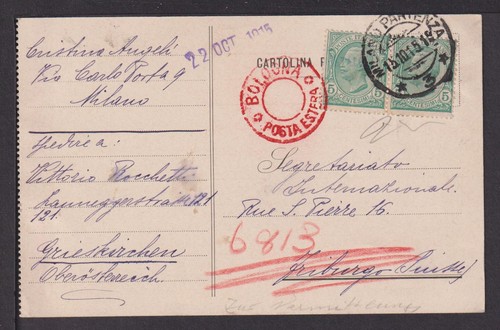 Cristina Angeli
Via Carlo Porta 9
Milano
spedire a:
Vittorio Rocchetti
121.
Grieskirchen
Oberösterreich.
22 OCT 1915
CARTOLINA
BOLOGNA
POSTA ESTERA
MILANO PARTENZA
3
5 5
5 5
Segretariato
Internazionale
Rue S. Pierre 16.
6813
Friburgo (Suisse)
Zur Vermittlung